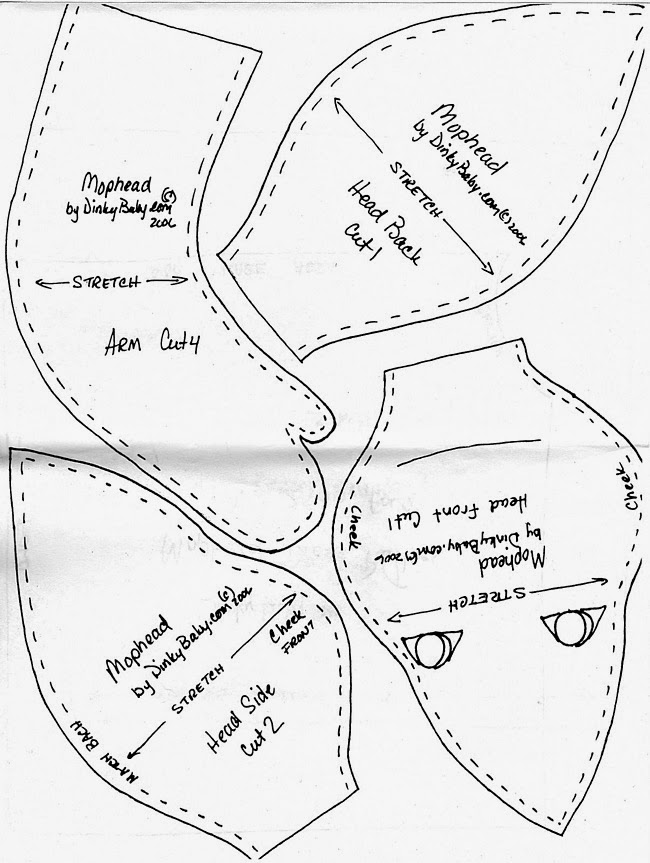 Mophead
by DinkyBaby.com (c)
2006
STRETCH
ARM Cut 4
Mophead
by DinkyBaby.com (c) 2006
STRETCH
Head Back
Cut 1
Cheek
Cheek
Head Front Cut 1
by DinkyBaby.com (c) 2006
Mophead
STRETCH
Mophead
by DinkyBaby.com (c) 2006
STRETCH
Cheek
FRONT
Head Side
Cut 2
MATCH BACH